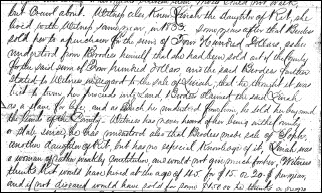 last Count about. Witness also knew Sarah the Daughter of Kit, she
lived with Witness some years, in 1833. Some years after that Brodes
sold her to a purchaser for the sum of Four Hundred Dollars, as he
understood from Brodes himself that she had been sold out of the County
for the said sum of Four hundred Dollars and the said Brodes further
Stated to Witness in regard to the sale of Sarah, that he thought it was
but to him, for
as a slave for life, and as such he understood from him, he sold her beyond
the limits of the County. Witness has never heard of her being either
or State since, he has understood also that Brodes made sale of Sophe,
another daughter of Kit, but has no especial Knowledge of it, Linah
was a woman of rather weakly Constitution, and would not give much for her, Witness
thinks Kit would have hired at the age of 45 for $15. or 20 $ per year,
and if not diseased would have sold for some $150 as he thinks